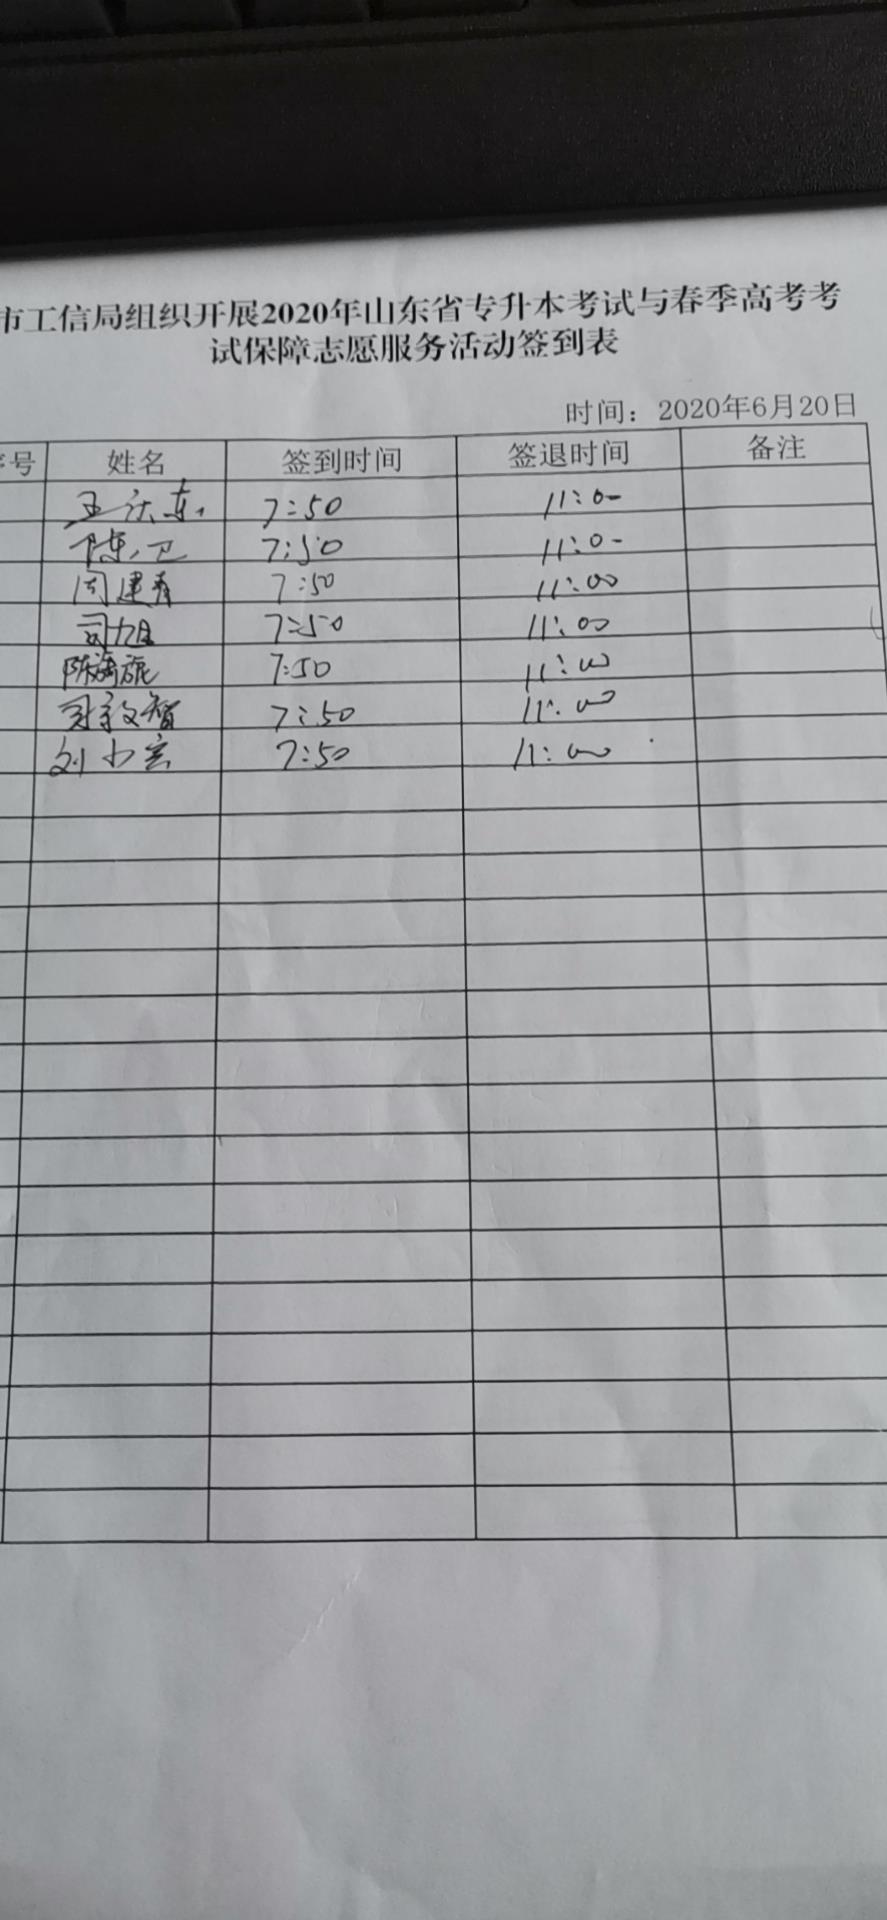 市工信局组织开展2020年山东省专升本考试与春季高考考
试保障志愿服务活动签到表
时间：2020年6月20日
号 姓名 签到时间 签退时间 备注
7:50 11:00
陈卫 7:50 11:00
周建春 7:50 11:00
司旭 7:50 11:00
陈 旎 7:50 11:00
7:50 11:00
刘小宏 7:50 11:00